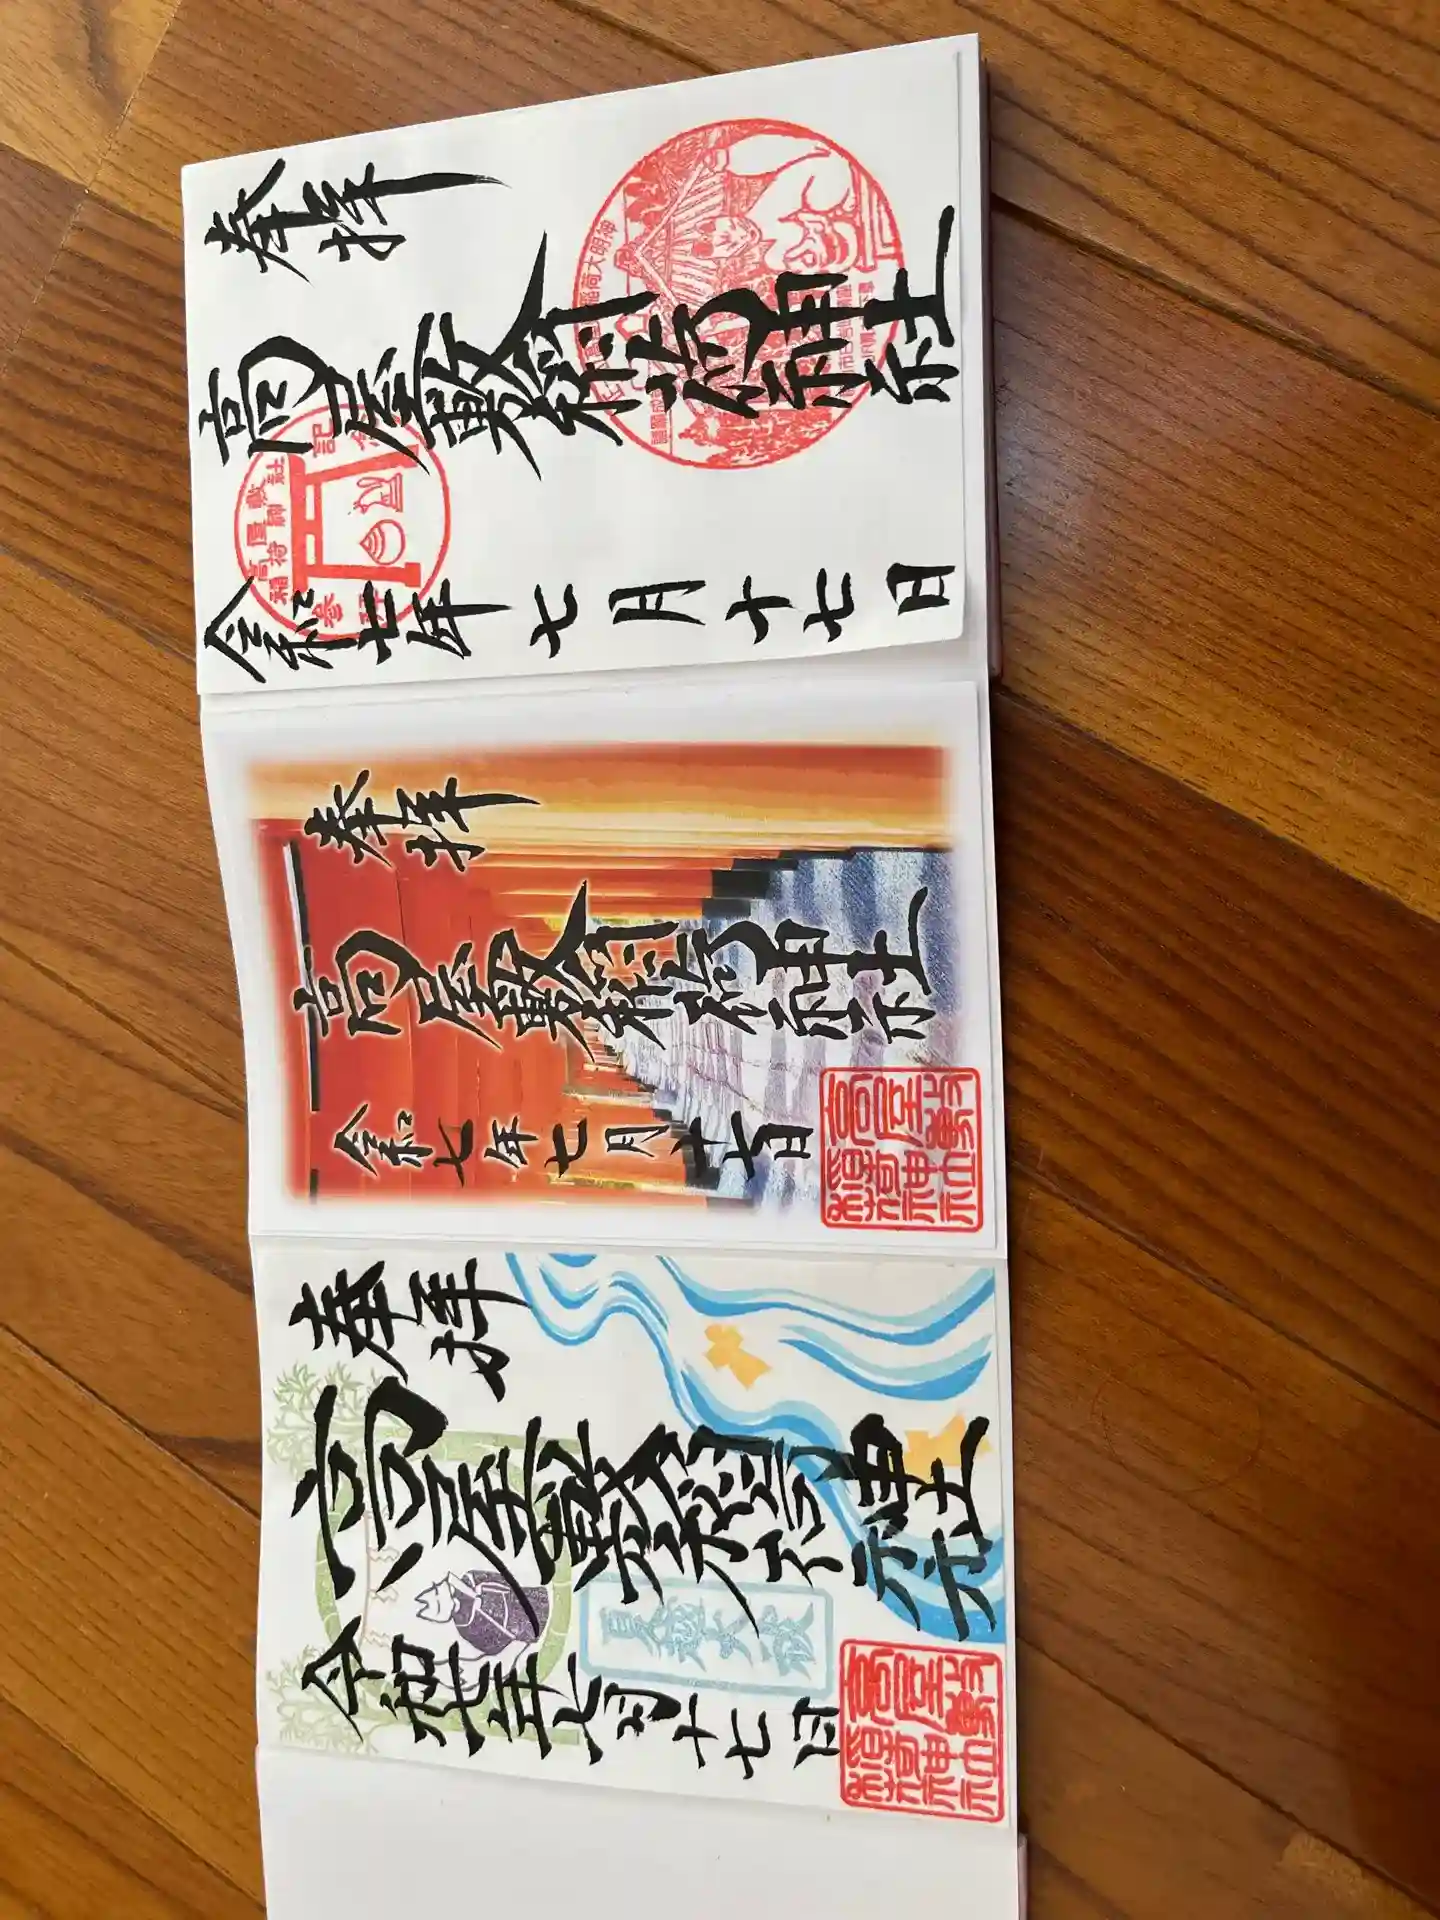 奉拝
高屋敷稲荷神社
令和七年七月十七日
高屋敷
稲荷神社
奉拝
高屋敷稲荷神社
令和七年七月十七日
高屋敷
稲荷神社
奉拝
高屋敷稲荷神社
令和七年七月十七日
夏越大祓
高屋敷
稲荷神社